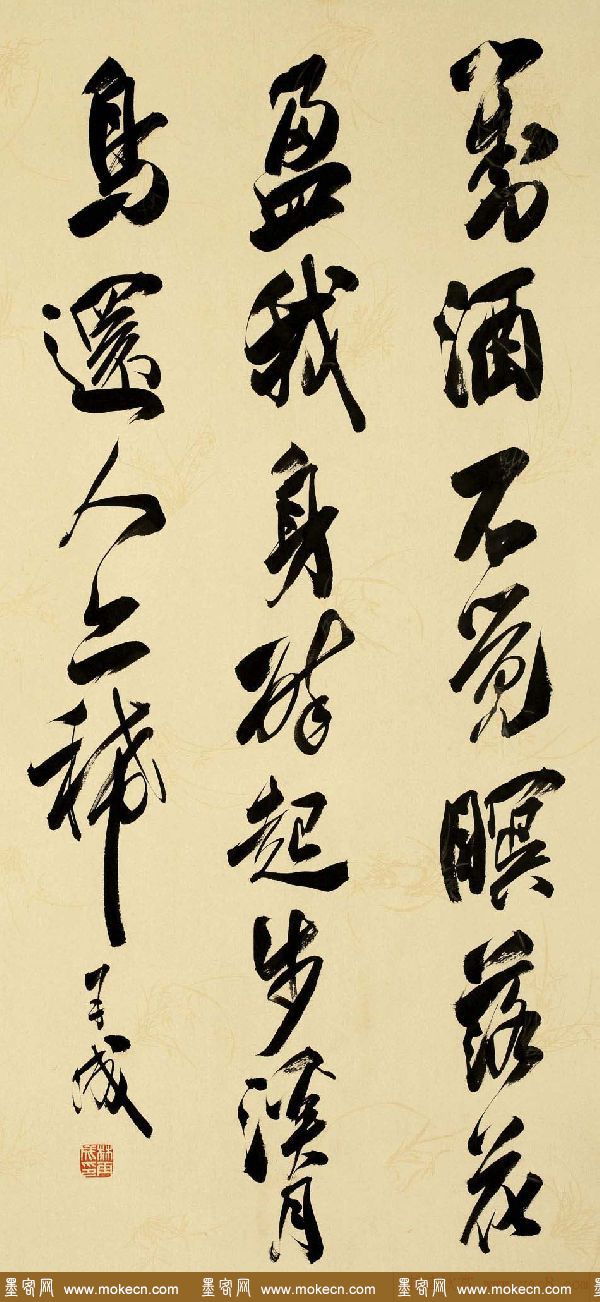 對酒不覺瞑落花
盈我身醉起步溪月
鳥還人亦稀
墨客网 www.mokecn.com 墨客网 www.mokecn.com 墨客网 www.mokecn.com